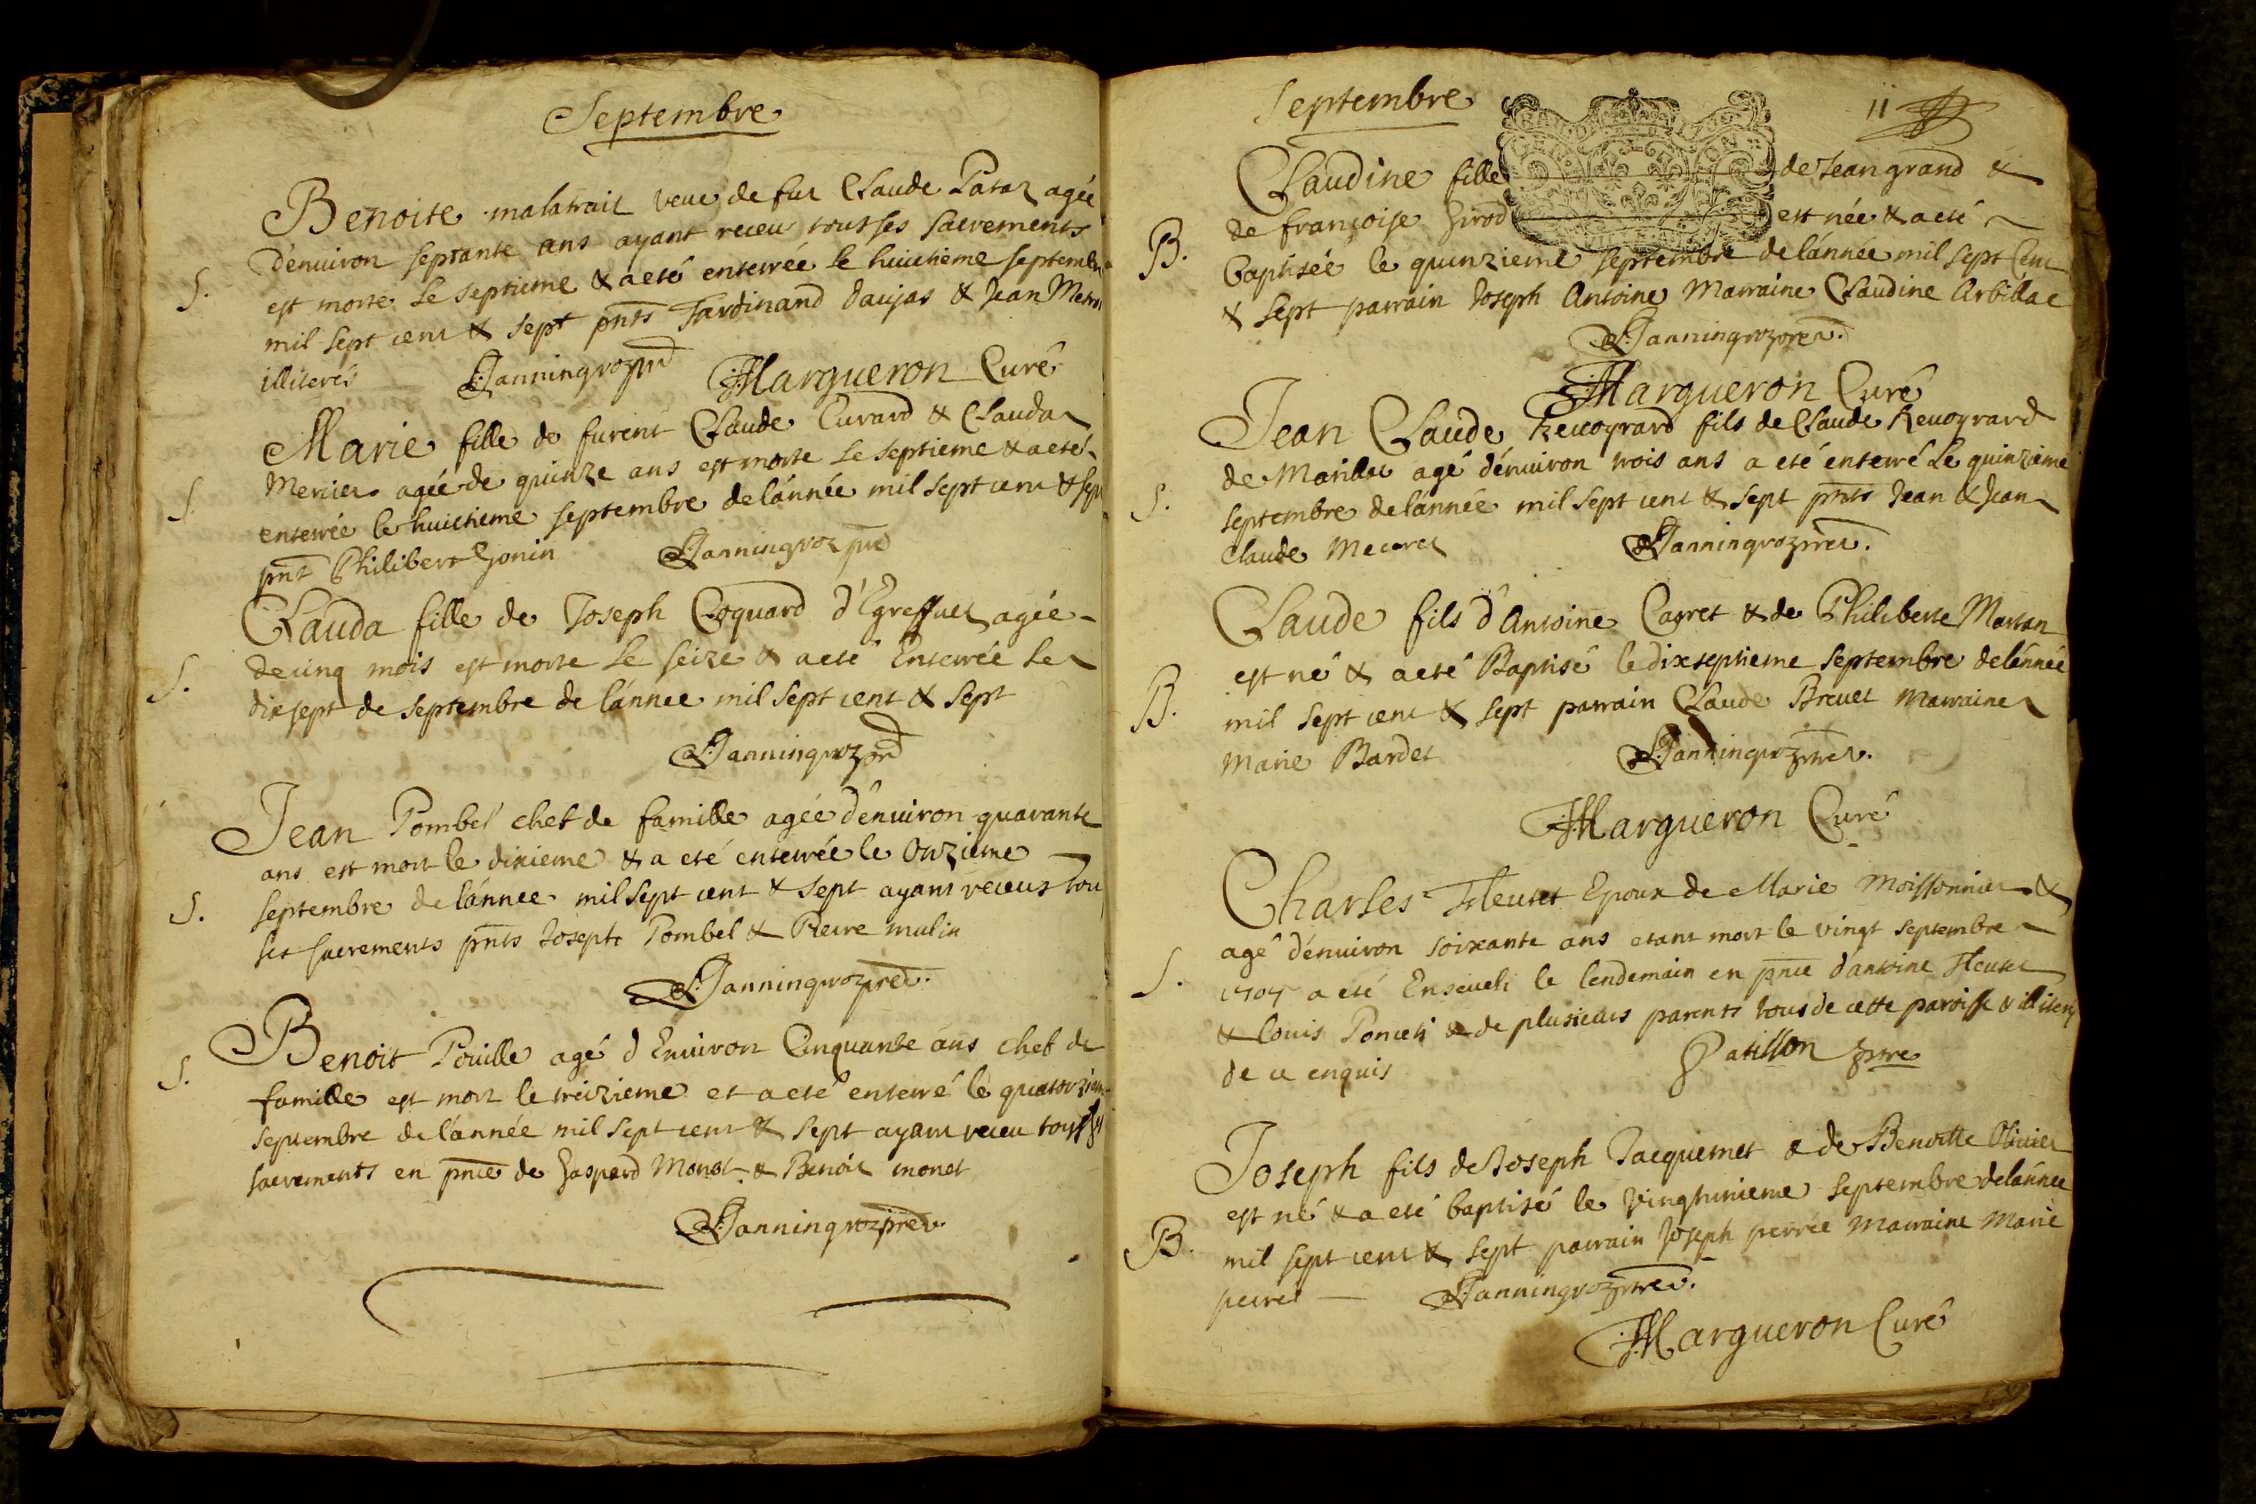 Septembre
Benoite malatrait veue de fut Claude agée
d'enuiron septante ans ayant receu tout ses sacrements
S. est morte le septieme & a eté enterrée le huictieme septembre
mil sept cent & sept pnts Fardinand daujas & Jean
illiterés Janningroz Margueron Curé
Marie fille de furent Claude Euvard & Clauda
Mercier agée de quinze ans est morte le septieme & a eté
S. enterrée le huictieme septembre de l'année mil sept cent & sept
pnt Philibert Gonin Janningroz
Clauda fille de Joseph Coquard d'Egreffuel agée
S. de cinq mois est morte le seize & a eté Enterrée le
dix sept de septembre de l'année mil sept cent & sept
Janningroz
Jean Pombel chef de famille agée d'enuiron quarante
ans est mort le dixieme & a eté enterrée le Onzieme
S. septembre de l'année mil sept cent & sept ayant receus tou
ses sacrements pnts Joseph Pombel & Pierre mulin
Janningroz
S. Benoit Pouille agé d'Enuiron Cinquante ans chef de
famille est mort le treizieme et a eté enterré le quatorzieme
septembre de l'année mil sept cent & sept ayant receu tous ses
sacrements en pnce de Gaspard Monot & Benoit monot
Janningroz
Septembre 11
Claudine fille de Jean grand &
B. de françoise Girod est née & a eté
Baptisée le quinzieme septembre de l'année mil sept Cent
& sept parrain Joseph Antoine Marraine Claudine Arbillat
Janningroz
Margueron Curé
Jean Claude Revoyrard fils de Claude Revoyrard
de Marillat agé d'enuiron trois ans a eté enterré le quinzieme
S. septembre de l'année mil sept cent & sept pnts Jean & Jean
Claude Janningroz
Claude fils d'Antoine Carret & de Philiberte Martan
est né & a eté Baptisé le dix septieme septembre de l'année
B. mil sept cent & sept parrain Claude Brevet Marraine
Marie Bardet Janningroz
Margueron Curé
Charles Fleutet Epoux de Marie Moissonnier &
agé d'enuiron soixante ans etant mort le vingt septembre
S. 1707 a eté Enseueli le lendemain en pnce d'antoine Fleutet
& Louis Poncet & de plusieurs parents tous de cette paroisse & illiterés
de ce enquis Patisson ptre
Joseph fils de Joseph Jacquemet & de Benoitte Olivier
est né & a eté baptisé le vingt unieme septembre de l'année
B. mil sept cent & sept parrain Joseph perret Marraine Marie
perret Janningroz
Margueron Curé